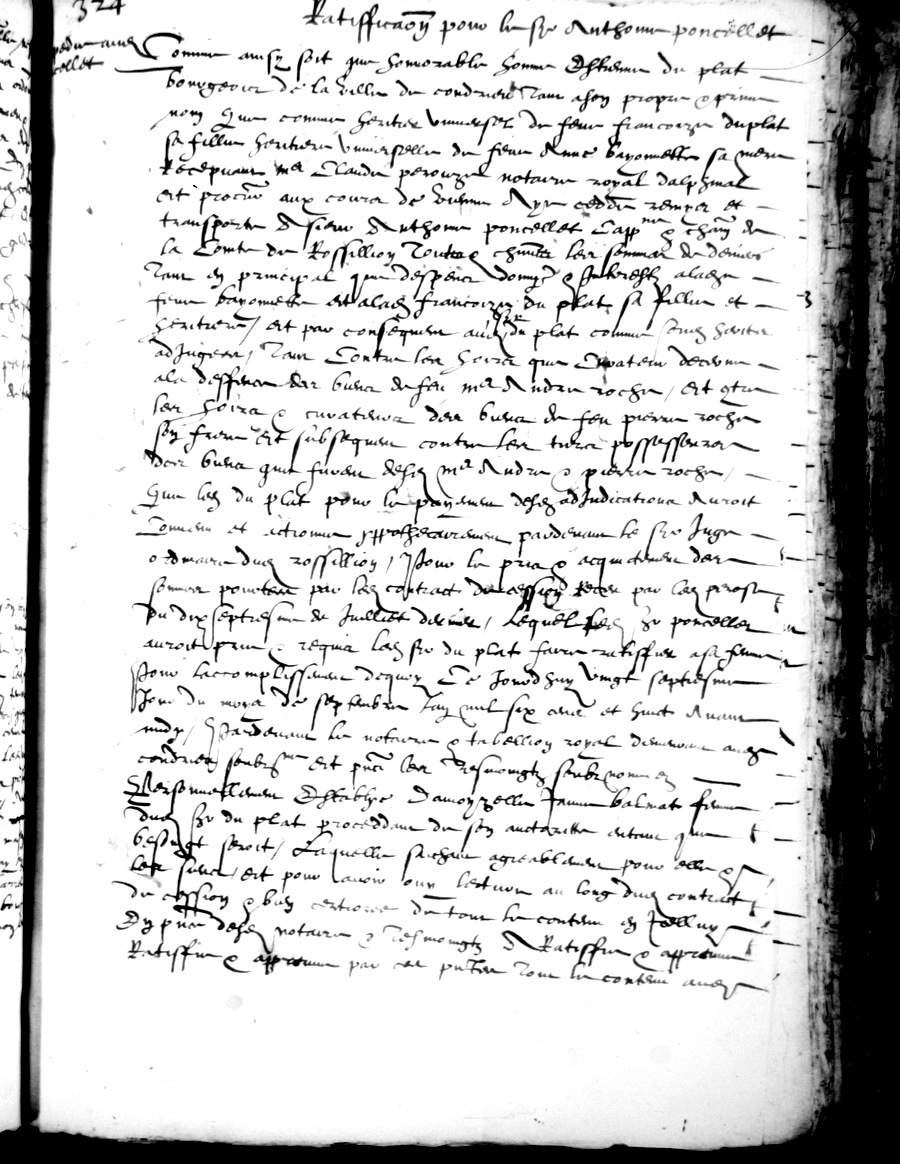 324
Ratifficaõn pour le sr Anthoine poncellet
Comme ainsy soit que honnorable homme Estienne du plat
bourgeois de la ville de condrieu tant a son propre & prime
nom que comme heritier universel de feue francoize duplat
sa fille heritiere universelle de feue Anne bayonnette sa mere
Recepvant me Claude perouze notaire royal dalphinal
est procur aux cours de vienne Aye ceddé remys et
transporté A sieur Anthoine poncellet Capp ne & chãn de
la Comté de Rossillion toutes & chacunes les sommes de deniers
tant en principal que despens domges & Interestz a lad
feue bayonnette et a lad francoize du plat sa fille et
heritiere / est par consequent aud sr du plat comme sond heritier
adjugees / tant Contre les hoirs que Curateur decerne
a la deffence des biens de feu me Andre roche / est contre
les hoirs & curateurs des biens de feu pierre roche
son frere est subsequent contre les tiers possesseurs
des biens que furent desd me Andre & pierre roche /
que led du plat pour le payement desd adjudications auroit
Convenu et actionné yppothecairement pardevant le sr Juge
ordinaire dud rossillion / pour le prix & acquictement des
sommes pourtees par led contract de cession Receu par led perouse
du dix septiesme de Juilliet dernier / Lequel led sr poncellet
auroit prie & requis led sr du plat faire ratiffier a sa femme
pour laccomplissement dequoy Ce Jourdhuy vingt septiesme
Jour du moys de septembre Lan mil six cens et huict Avant
midy / Pardevant le notaire & tabellion royal demeurant aud
condrieu soubzne est pnt les tesmoingtz soubznommes
Personnellement Establye Damoyzelle Janne balmat femme
dud sr du plat proceddant de son auctoritte entant que
besoingt seroit / Laquelle saichant agreablement pour elle &
les siens / est pour avoir ouy lecture au long dud contract
de cession & bien certioree de tout le contenu en Icelluy
En pnce desd notaire & tesmoingtz A Ratiffie & approuve
Ratiffie & approuve par ces pntes tout le contenu aud